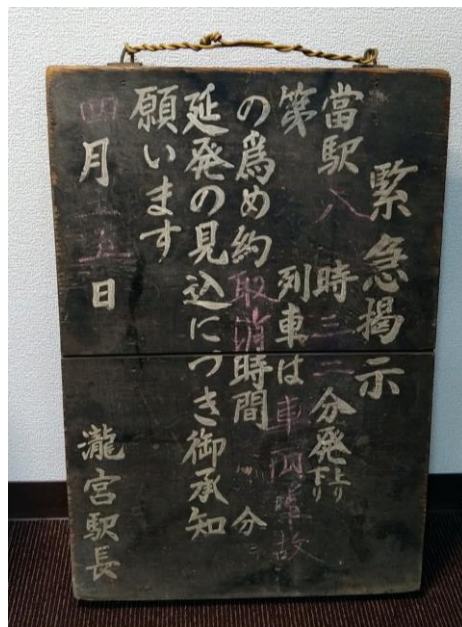 緊急掲示
當駅八時三二分発上り下り
第 列車は車両故
の為め約取消時間 分
延発の見込につき御承知
願います
四月 五日
瀧宮駅長